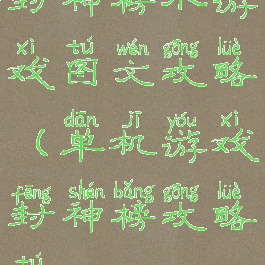 封神榜游
xì tú wén gōng lüè
戏图文攻略
dān jī yóu xì
（单机游戏
fēng shén bǎng gōng lüè
封神榜攻略
tú